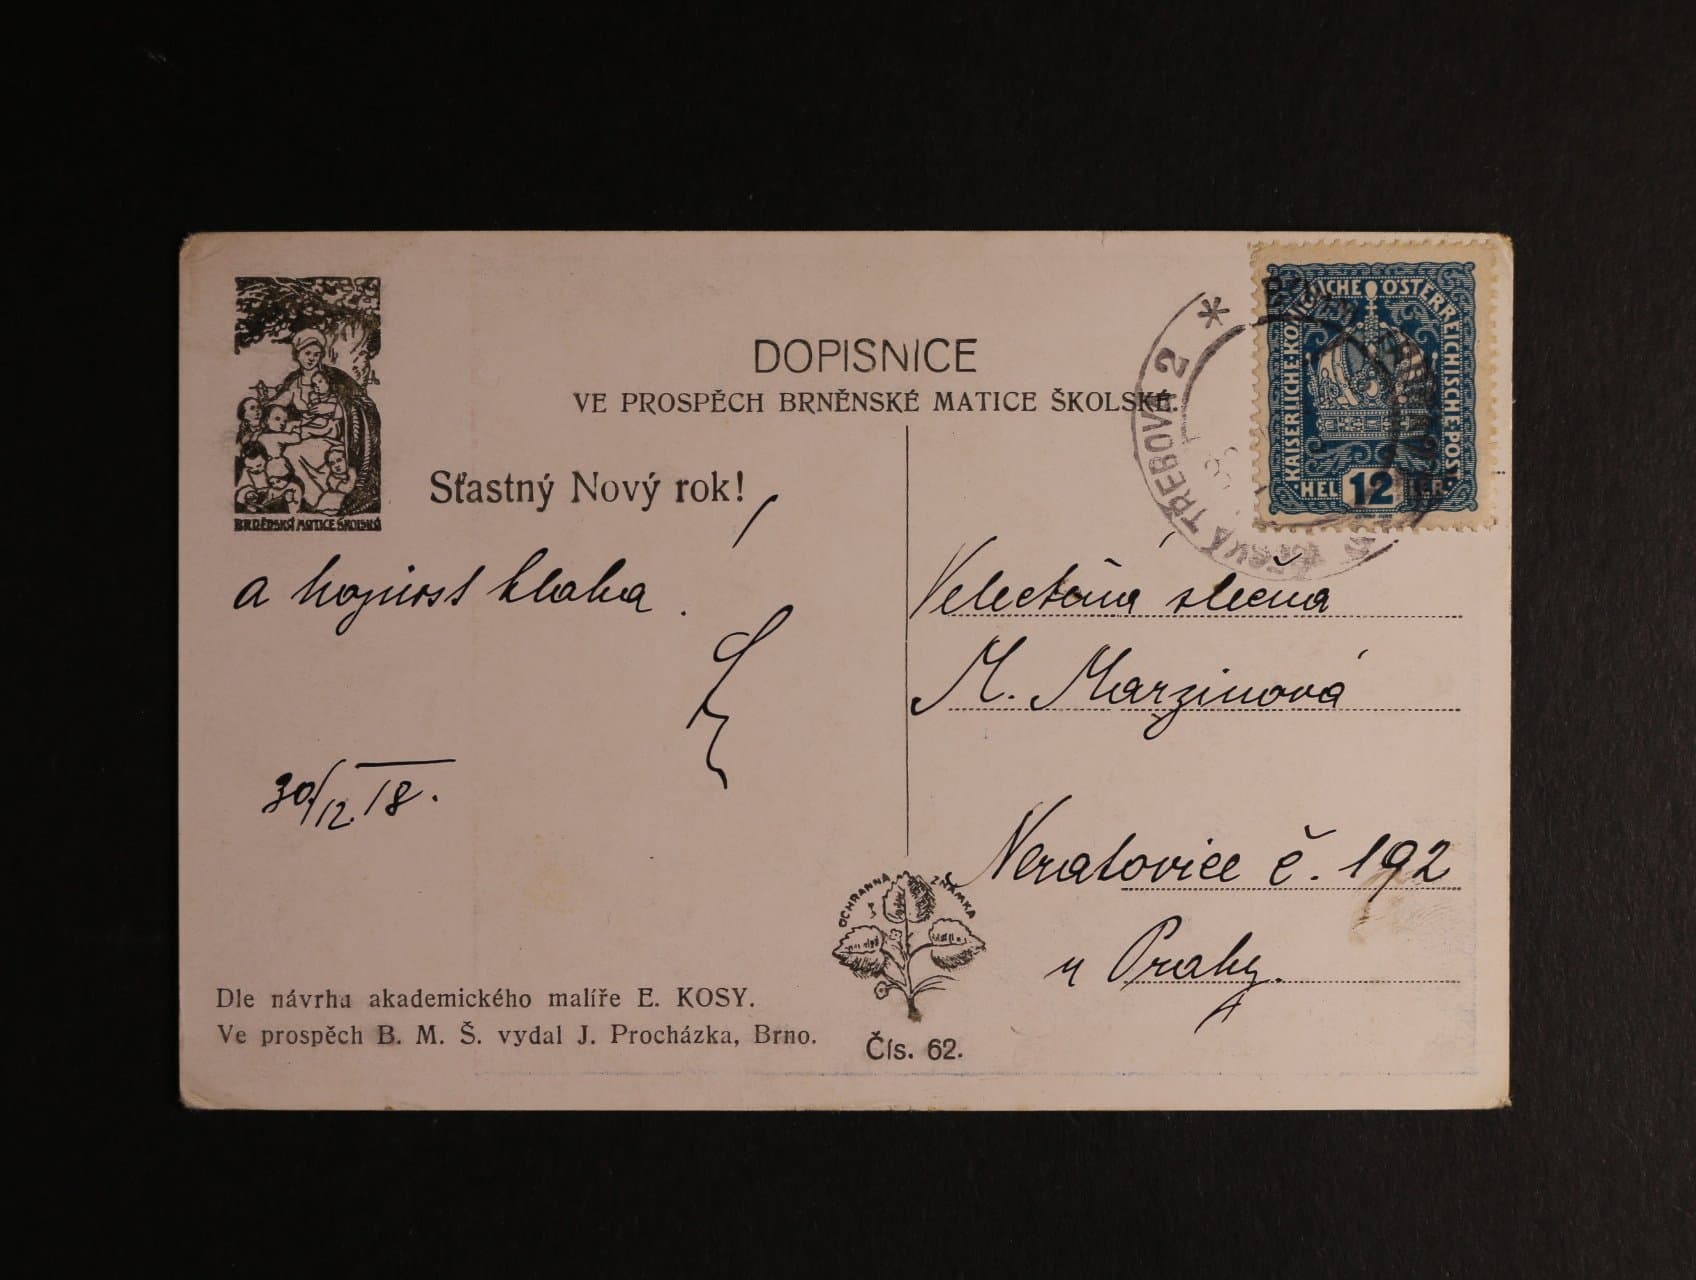 DOPISNICE
VE PROSPĚCH BRNĚNSKÉ MATICE ŠKOLSKÉ.
BRNĚNSKÁ MATICE ŠKOLSKÁ
Sťastný Nový rok!
a hojnost blaha.
30/12. 18.
Dle návrhu akademického malíře E. KOSY.
Ve prospěch B. M. Š. vydal J. Procházka, Brno.
OCHRANNÁ ZNÁMKA
Čís. 62.
KAISERLICHE·KÖNIGLICHE ÖSTERREICHISCHE·POST
HELLER 12
ČESKÁ TŘEBOVÁ 2
Velectěná slečna
M. Marzinová
Neratovice č. 192
u Prahy.